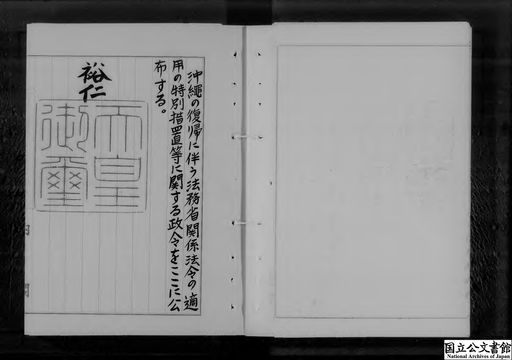 沖縄の復帰に伴う法務省関係法令の適
用の特別措置等に関する政令をここに公
布する。
裕仁
天皇
御璽
国立公文書館
National Archives of Japan